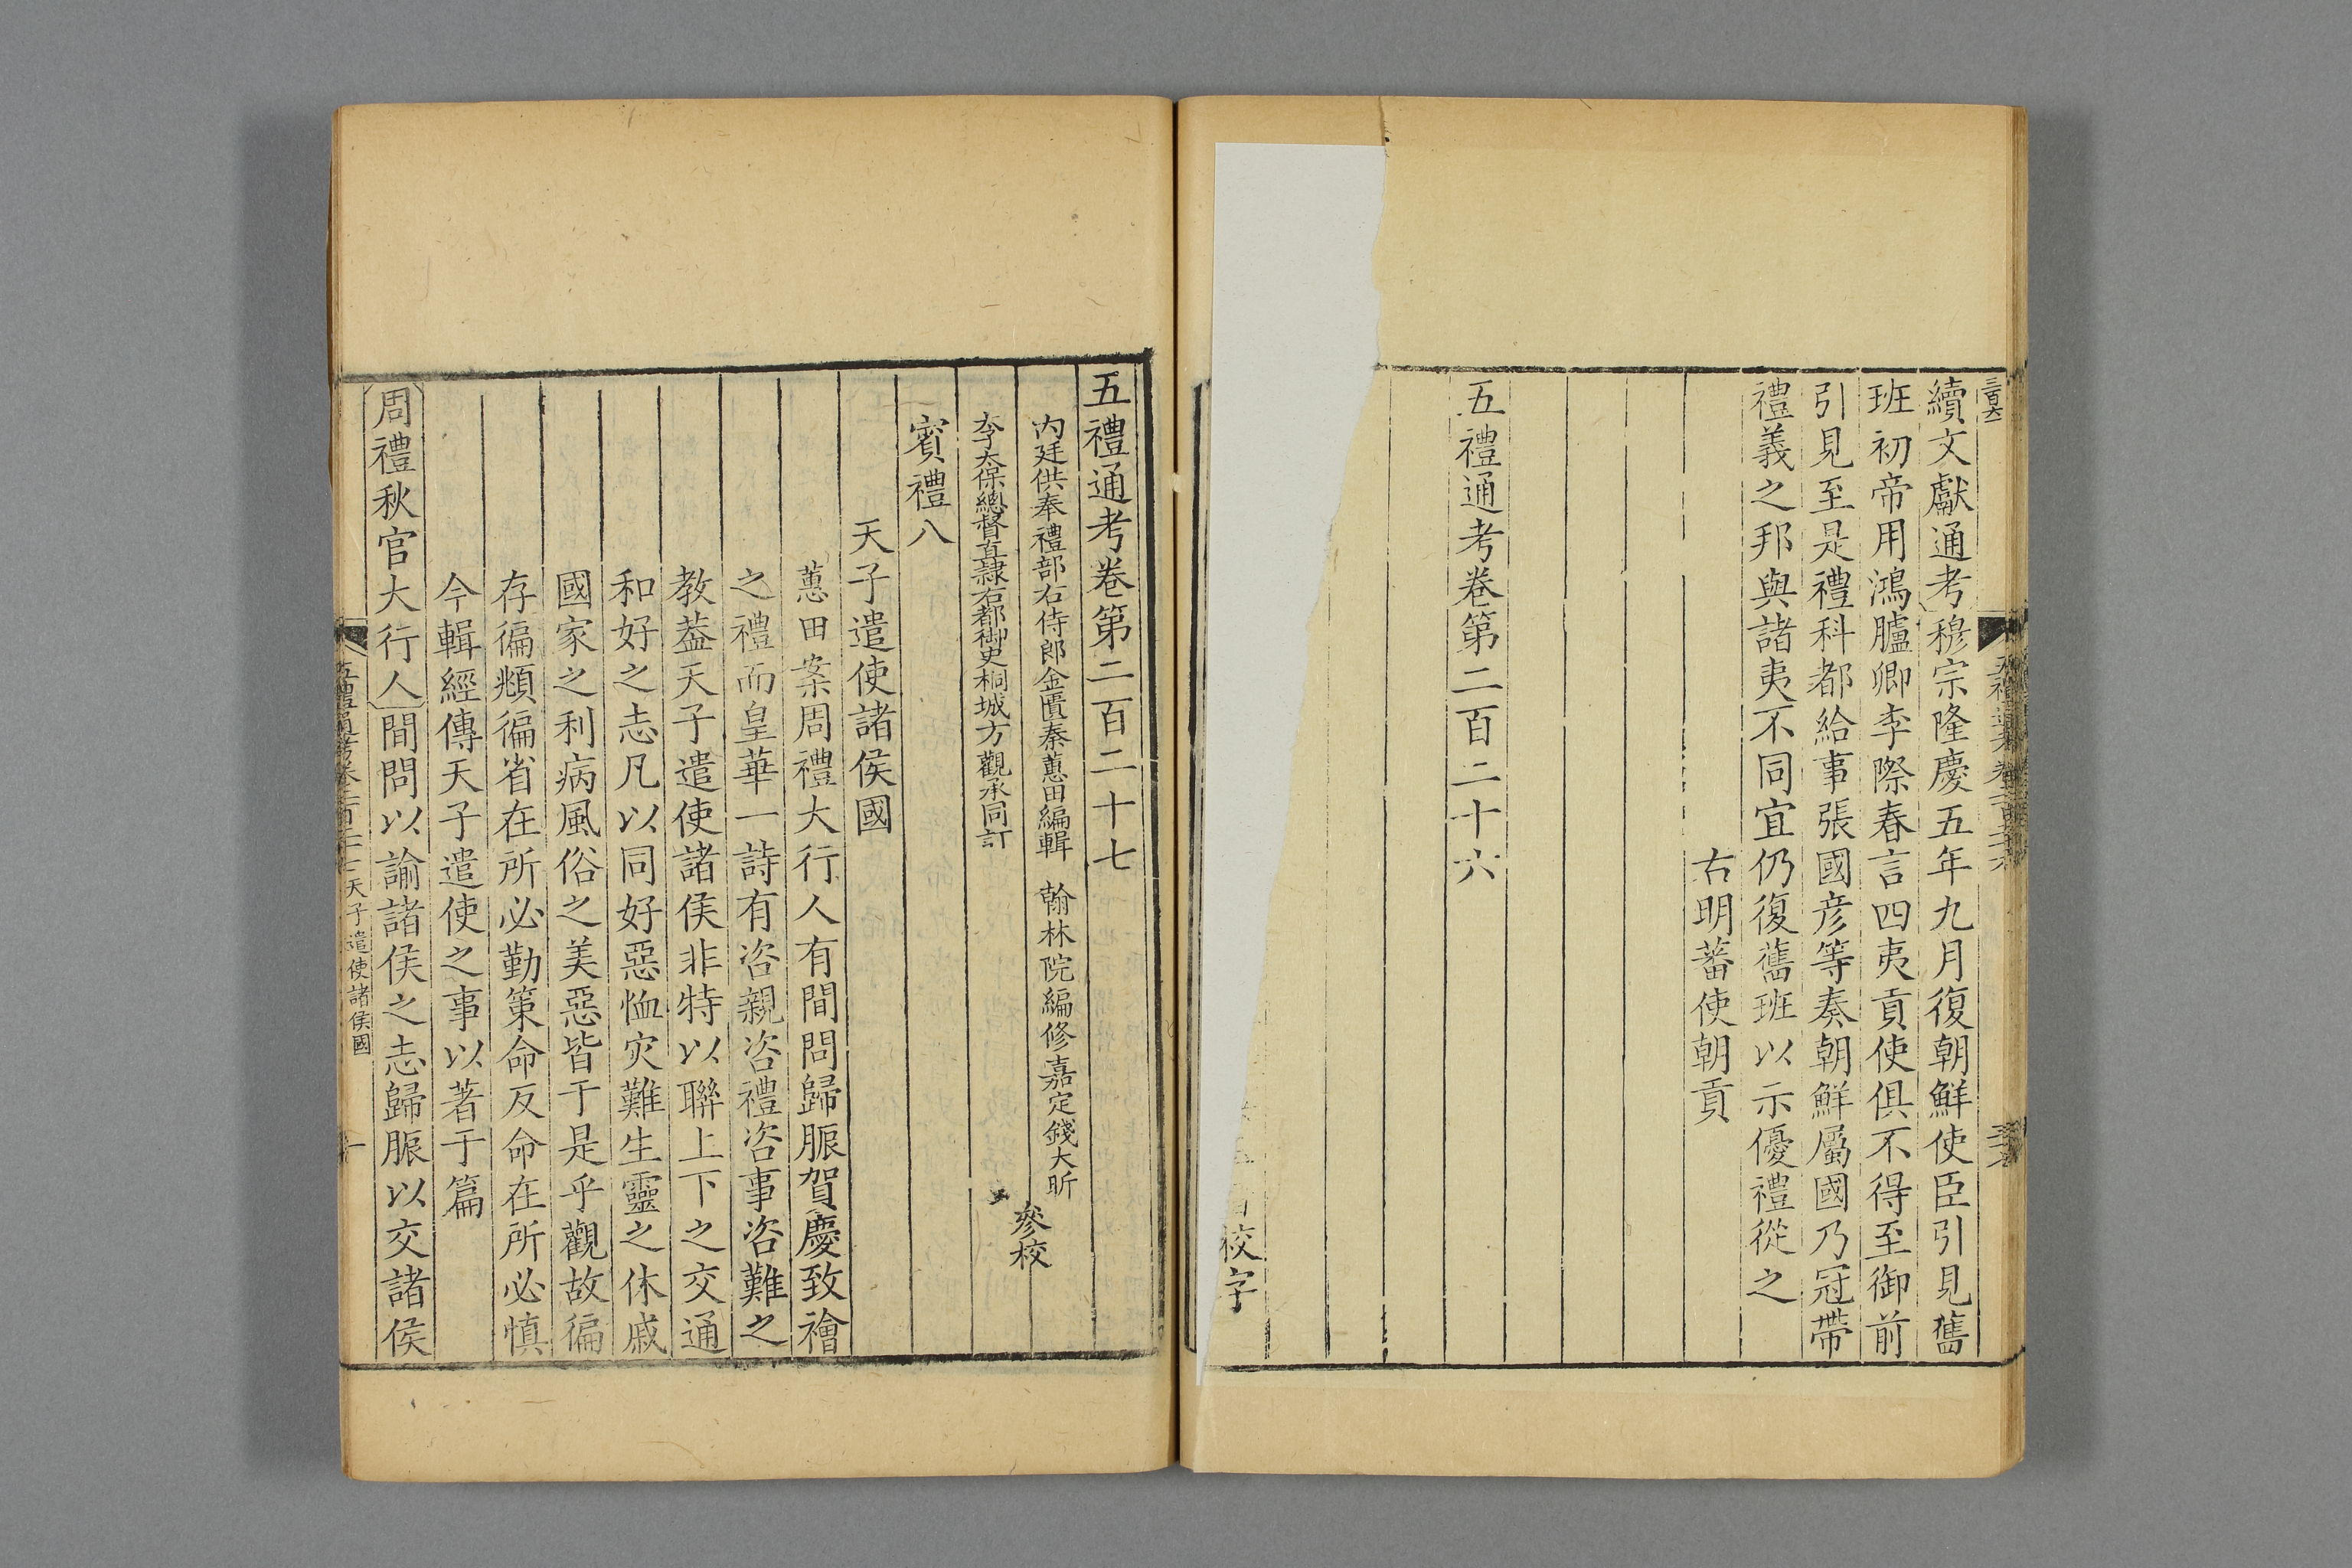 續文獻通考穆宗隆慶五年九月復朝鮮使臣引見舊
班初帝用鴻臚卿李際春言四夷貢使俱不得至御前
引見至是禮科都給事張國彦等奏朝鮮屬國乃冠帶
禮義之邦與諸夷不同宜仍復舊班以示優禮從之
右明蕃使朝貢
五禮通考卷第二百二十六
校字
五禮通考卷第二百二十七
内廷供奉禮部右侍郎金匱秦蕙田編輯 翰林院編修嘉定錢大昕
參校
李太保總督直隸右都御史桐城方觀承同訂
賓禮八
天子遣使諸侯國
蕙田案周禮大行人有間問歸脤賀慶致禬
之禮而皇華一詩有咨親咨禮咨事咨難之
教葢天子遣使諸侯非特以聯上下之交通
和好之志凡以同好惡恤灾難生靈之休戚
國家之利病風俗之美惡皆于是乎觀故徧
存徧頫徧省在所必勤策命反命在所必慎
今輯經傳天子遣使之事以著于篇
周禮秋官大行人間問以諭諸侯之志歸脤以交諸侯
五禮通考卷二百二十七 天子遣使諸侯國 一